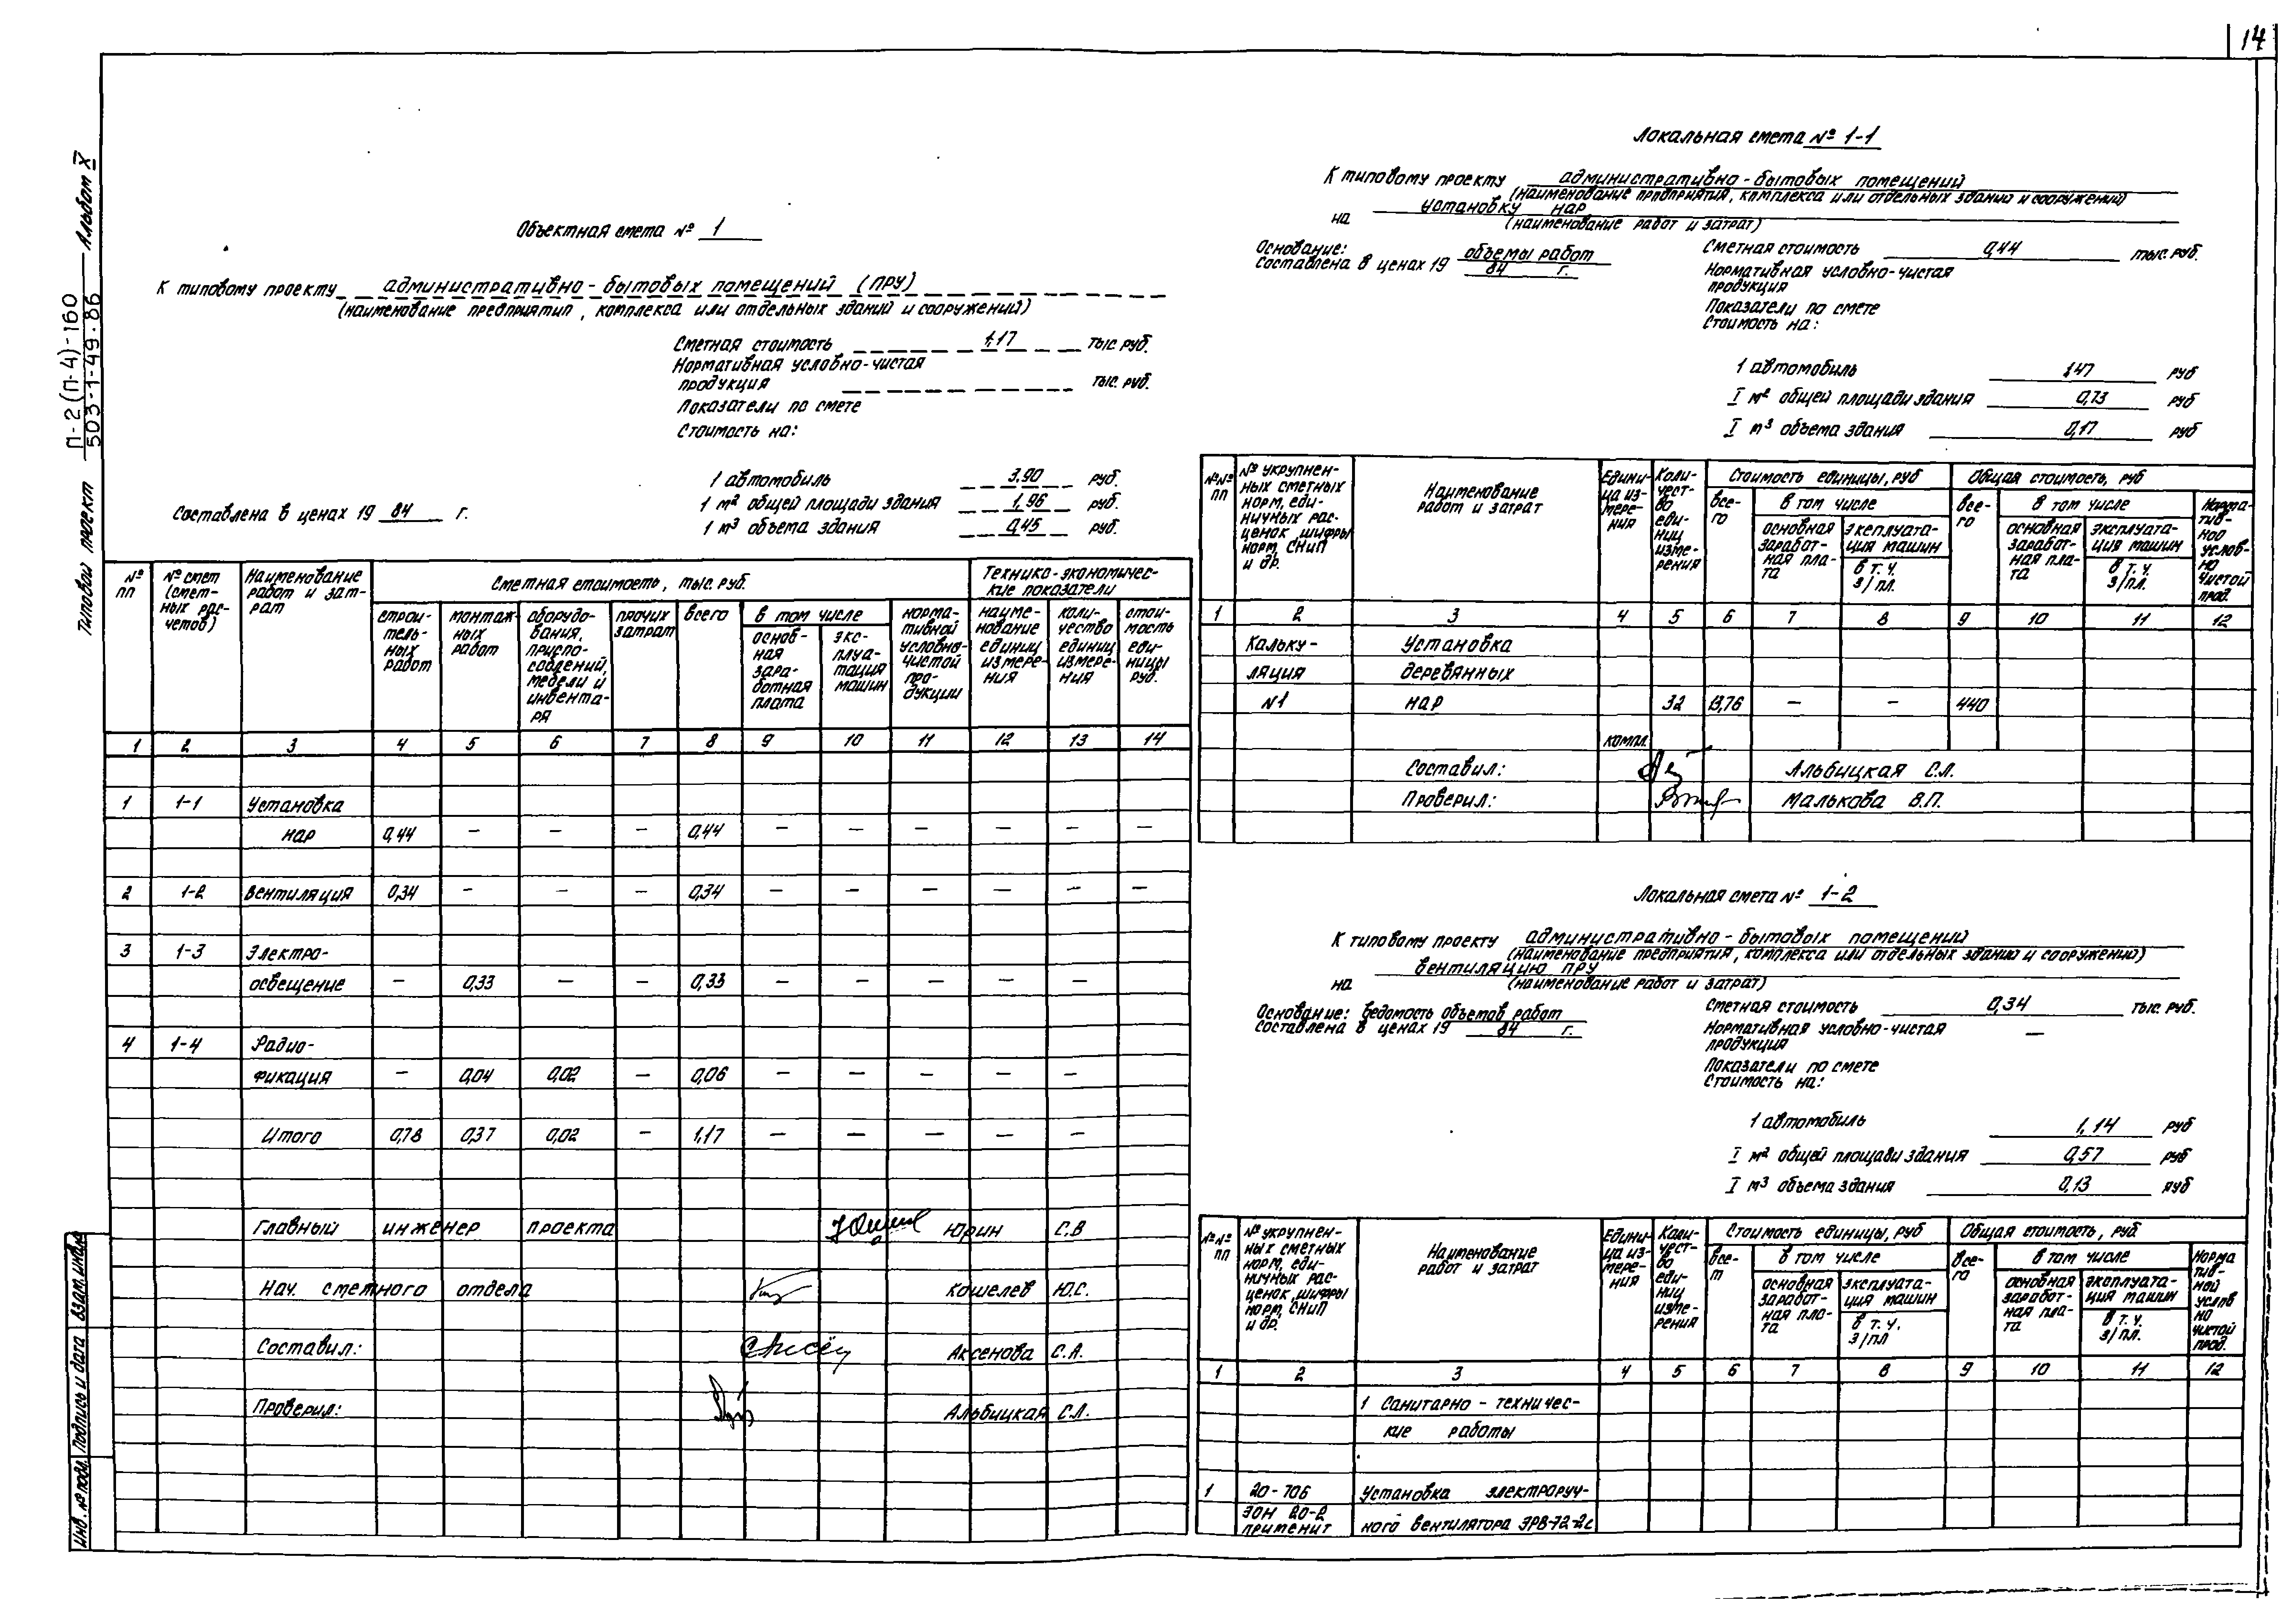 14
Типовой проект П-2(П-4)-160 Альбом X
503-1-49.86
Взам. инв.№
Подпись и дата
Инв. № подл.
Объектная смета № 1
К типовому проекту административно-бытовых помещений (ПРУ)
(наименование предприятия, комплекса или отдельных зданий и сооружений)
Сметная стоимость 1,17 тыс руб.
Нормативная условно-чистая
продукция тыс. руб.
Показатели по смете
Стоимость на:
1 автомобиль 3.90 руб.
Составлена в ценах 19 84 г.
1 м² общей площади здания 1,96 руб.
1 м³ объема здания 0,45 руб.
№ пп
№ смет (смет-ных рас-четов)
Наименование работ и зат-рат
Сметная стоимость, тыс. руб.
Технико-экономичес-кие показатели
строи-тель-ных работ
монтаж-ных работ
оборудо-вания, приспо-соблений, мебели и инвента-ря
прочих затрат
всего
в том числе
основ-ная зара-ботная плата
экс-плуа-тация машин
норма-тивной условно-чистой про-дукции
наиме-нование единиц измере-ния
коли-чество единиц измере-ния
стои-мость еди-ницы руб.
1 2 3 4 5 6 7 8 9 10 11 12 13 14
1 1-1 Установка
нар 0,44 — — — 0,44 — — — — — —
2 1-2 Вентиляция 0,34 — — — 0,34 — — — — — —
3 1-3 Электро-
освещение — 0,33 — — 0,33 — — — — —
4 1-4 Радио-
фикация — 0,04 0,02 — 0,06 — — — — —
Итого 0,78 0,37 0,02 — 1,17 — — — — —
Главный инженер проекта Юрин С.В
Нач. сметного отдела Кошелев Ю.С.
Составил: Аксенова С.А.
Проверил: Альбицкая С.Л.
Локальная смета № 1-1
К типовому проекту административно-бытовых помещений
(наименование предприятия, комплекса или отдельных зданий и сооружений)
на установку нар
(наименование работ и затрат)
Основание: объемы работ
Составлена в ценах 19 84 г.
Сметная стоимость 0,44 тыс. руб.
Нормативная условно-чистая
продукция
Показатели по смете
Стоимость на:
1 автомобиль 1,47 руб
I м² общей площади здания 0,73 руб
I м³ объема здания 0,17 руб
№№ пп
№ укрупнен-ных сметных норм, еди-ничных рас-ценок, шифры норм, СНиП и др.
Наименование работ и затрат
Едини-ца из-мере-ния
Коли-чест-во еди-ниц изме-рения
Стоимость единицы, руб
Общая стоимость, руб
все-го
в том числе
основная заработ-ная пла-та
эксплуата-ция машин
в т. ч. з/пл.
все-го
в том числе
основная заработ-ная пла-та
эксплуата-ция машин
в т. ч. з/пл.
Норма-тив-ной услов-но чистой прод.
1 2 3 4 5 6 7 8 9 10 11 12
Кальку- Установка
ляция деревянных
N1 нар 32 13,76 — — 440
компл.
Составил: Альбицкая С.Л.
Проверил: Малькова В.П.
Локальная смета № 1-2
К типовому проекту административно-бытовых помещений
(наименование предприятия, комплекса или отдельных зданий и сооружений)
на вентиляцию ПРУ
(наименование работ и затрат)
Основание: ведомость объемов работ
Составлена в ценах 19 84 г.
Сметная стоимость 0,34 тыс. руб.
Нормативная условно-чистая —
продукция
Показатели по смете
Стоимость на:
1 автомобиль 1,14 руб
I м² общей площади здания 0,57 руб
I м³ объема здания 0,13 руб
№№ пп
№ укрупнен-ных сметных норм, еди-ничных рас-ценок, шифры норм, СНиП и др.
Наименование работ и затрат
Едини-ца из-мере-ния
Коли-чест-во еди-ниц изме-рения
Стоимость единицы, руб
Общая стоимость, руб
в том числе
основная заработ-ная пла-та
эксплуата-ция машин
в т. ч. з/пл
все-го
в том числе
основная заработ-ная пла-та
эксплуата-ция машин
в т. ч. з/пл.
Норма тив-ной услов но чистой прод.
1 2 3 4 5 6 7 8 9 10 11 12
1 Санитарно-техничес-
кие работы
1 20-706 Установка электроруч-
ЕОН 20-2
применит ного вентилятора ЭРВ-72-2с